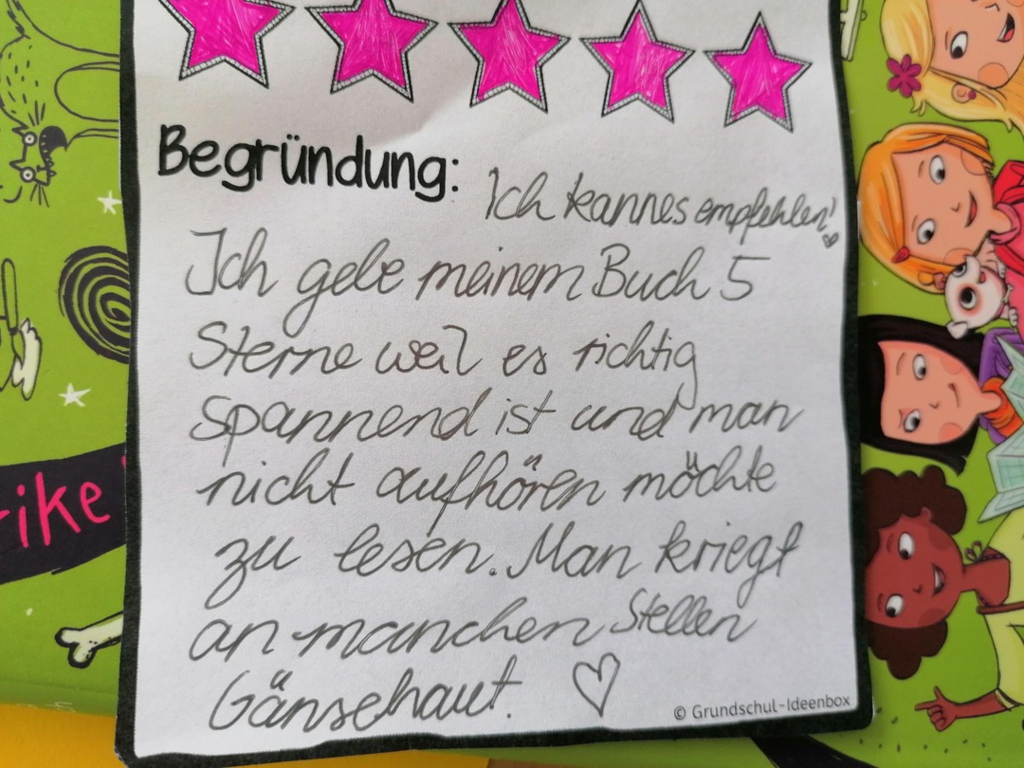 Begründung: Ich kann es empfehlen!
Ich gebe meinem Buch 5
Sterne weil es richtig
spannend ist und man
nicht aufhören möchte
zu lesen. Man kriegt
an manchen Stellen
Gänsehaut. ♡
© Grundschul-Ideenbox